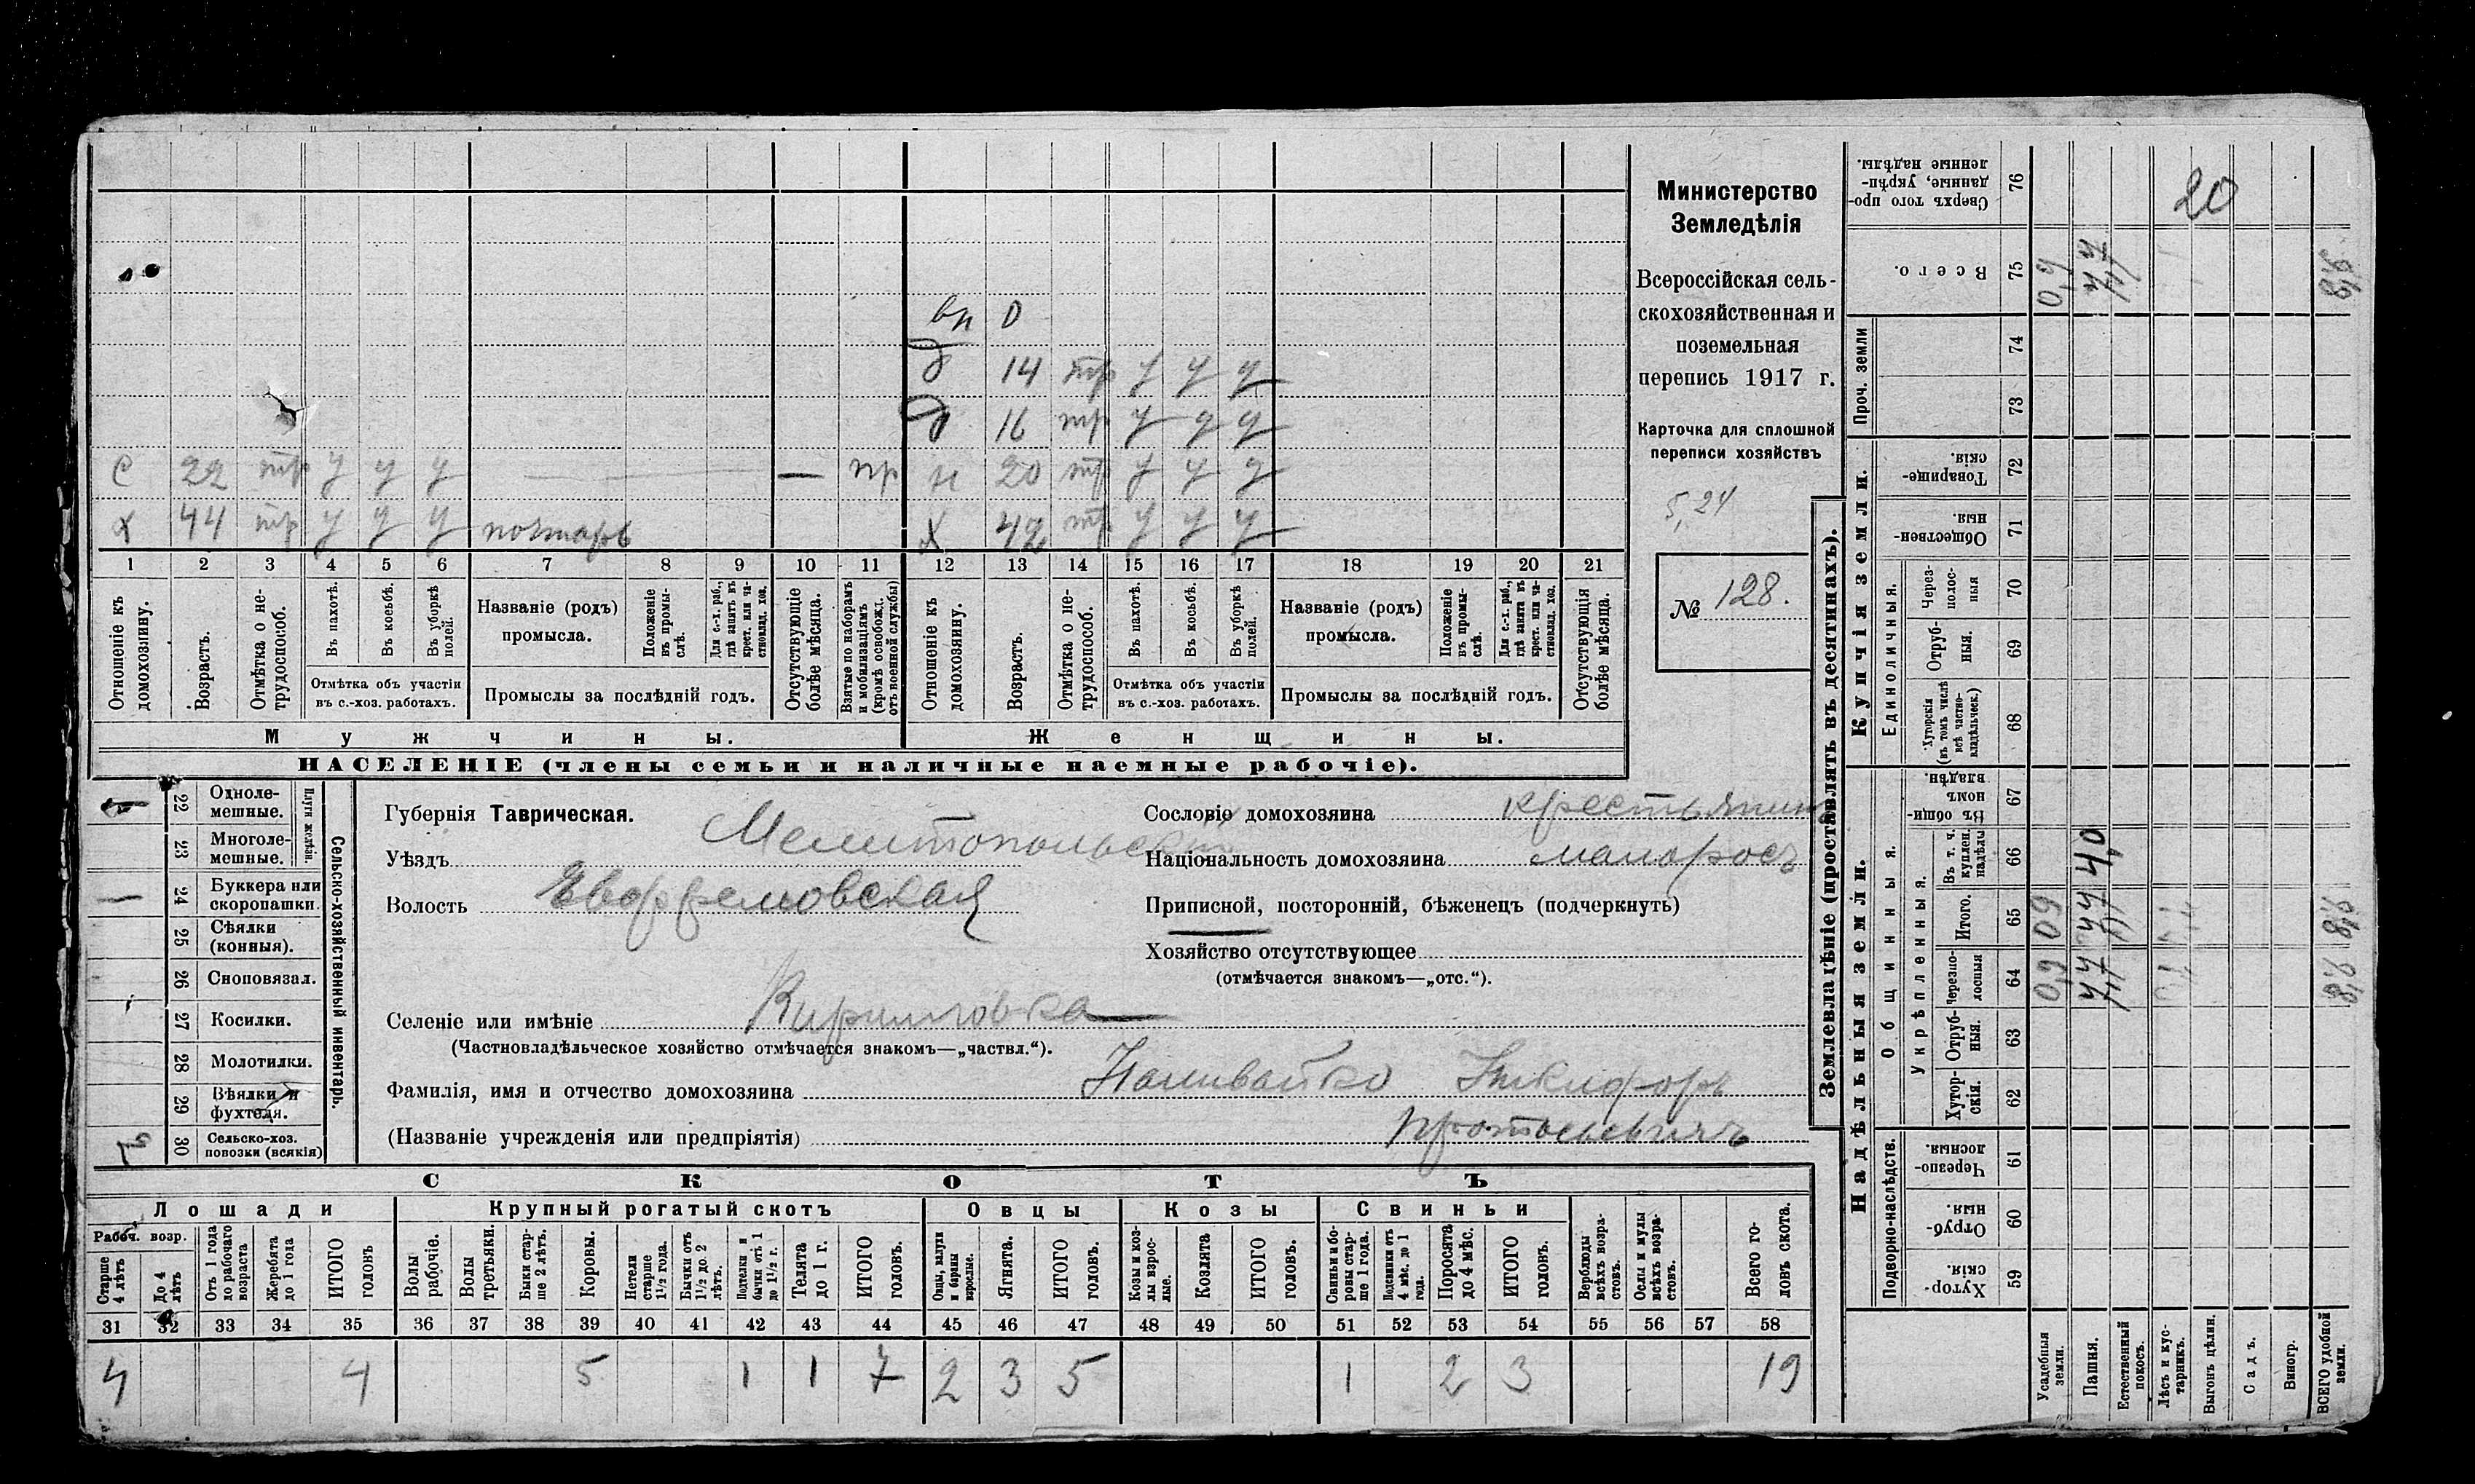 вн 0
д 14 тр у у у
д 16 тр у у у
с 22 тр у у у — — — — пр н 20 тр у у у
х 44 тр у у у почтарь х 42 тр у у у
1 2 3 4 5 6 7 8 9 10 11 12 13 14 15 16 17 18 19 20 21
Отношеніе къ домохозяину.
Возрастъ.
Отмѣтка о нетрудоспособ.
Въ пахотѣ.
Въ косьбѣ.
Въ уборкѣ полей.
Отмѣтка объ участіи
въ с.-хоз. работахъ.
Названіе (родъ)
промысла.
Положеніе въ промыслѣ.
Для с.-х. раб., гдѣ занятъ въ крест. или частновлад. хоз.
Промыслы за послѣдній годъ.
Отсутствующіе болѣе мѣсяца.
Взятые по наборамъ и мобилизаціямъ (кромѣ освобожд. отъ военной службы)
Отношеніе къ домохозяину.
Возрастъ.
Отмѣтка о нетрудоспособ.
Въ пахотѣ.
Въ косьбѣ.
Въ уборкѣ полей.
Отмѣтка объ участіи
въ с.-хоз. работахъ.
Названіе (родъ)
промысла.
Положеніе въ промыслѣ.
Для с.-х. раб., гдѣ занята въ крест. или частновлад. хоз.
Промыслы за послѣдній годъ.
Отсутствующія болѣе мѣсяца.
Мужчины.
Женщины.
НАСЕЛЕНІЕ (члены семьи и наличные наемные рабочіе).
Министерство
Земледѣлія
Всероссійская сель-
скохозяйственная и
поземельная
перепись 1917 г.
Карточка для сплошной
переписи хозяйствъ
5,24
№ 128.
22 Однолемешные.
23 Многолемешные.
Плуги желѣзн.
24 Буккера или скоропашки.
25 Сѣялки (конныя).
26 Сноповязал.
27 Косилки.
28 Молотилки.
29 Вѣялки и фухтеля.
30 Сельско-хоз. повозки (всякія)
Сельско-хозяйственный инвентарь.
Губернія Таврическая.
Уѣздъ Мелитопольскій
Волость Ефремовская
Сословіе домохозяина крестьянинъ
Національность домохозяина малоросъ
Приписной, посторонній, бѣженецъ (подчеркнуть)
Хозяйство отсутствующее
(отмѣчается знакомъ—„отс.“).
Селеніе или имѣніе Кирилловка
(Частновладѣльческое хозяйство отмѣчается знакомъ—„частвл.“).
Фамилія, имя и отчество домохозяина Наливайко Никифоръ
(Названіе учрежденія или предпріятія)
СКОТЪ
Лошади Крупный рогатый скотъ Овцы Козы Свиньи
Рабоч. возр.
Старше 4 лѣтъ
До 4 лѣтъ
Отъ 1 года до рабочаго возраста
Жеребята до 1 года
ИТОГО головъ
Волы рабочіе.
Волы третьяки.
Быки старше 2 лѣтъ.
Коровы.
Нетели старше 1½ года.
Бычки отъ 1½ до 2 лѣтъ.
Подтелки и бычки отъ 1 до 1½ г.
Телята до 1 г.
ИТОГО головъ.
Овцы, валухи и бараны взрослые.
Ягнята.
ИТОГО головъ.
Козы и козлы взрослые.
Козлята
ИТОГО головъ.
Свиньи и боровы старше 1 года.
Подсвинки отъ 4 мѣс. до 1 года.
Поросята до 4 мѣс.
ИТОГО головъ.
Верблюды всѣхъ возрастовъ.
Ослы и мулы всѣхъ возрастовъ.
Всего головъ скота.
31 32 33 34 35 36 37 38 39 40 41 42 43 44 45 46 47 48 49 50 51 52 53 54 55 56 57 58
4 4 5 1 1 7 2 3 5 1 2 3 19
Землевладѣніе (проставлять въ десятинахъ).
Надѣльныя земли.
Купчія земли.
Проч. земли
Подворно-наслѣдств.
Общинныя.
Укрѣпленныя.
Единоличныя.
59 Хуторскія.
60 Отрубныя.
61 Черезполосныя.
62 Хуторскія.
63 Отрубныя.
64 Черезполосныя
65 Итого.
66 Въ т. ч. куплен. надѣлы
67 Въ общинномъ владѣн.
68 Хуторскія (въ томъ числѣ всѣ частновладѣльческ.)
69 Отрубныя.
70 Черезполосныя
71 Общественныя.
72 Товарищескія.
73
74
75 Всего.
76 Сверхъ того проданные, укрѣпленные надѣлы.
20
40
Усадебныя земли.
Пашня.
Естественный покосъ.
Лѣсъ и кустарникъ.
Выгонъ цѣлин.
Садъ.
Виногр.
ВСЕГО удобной земли.